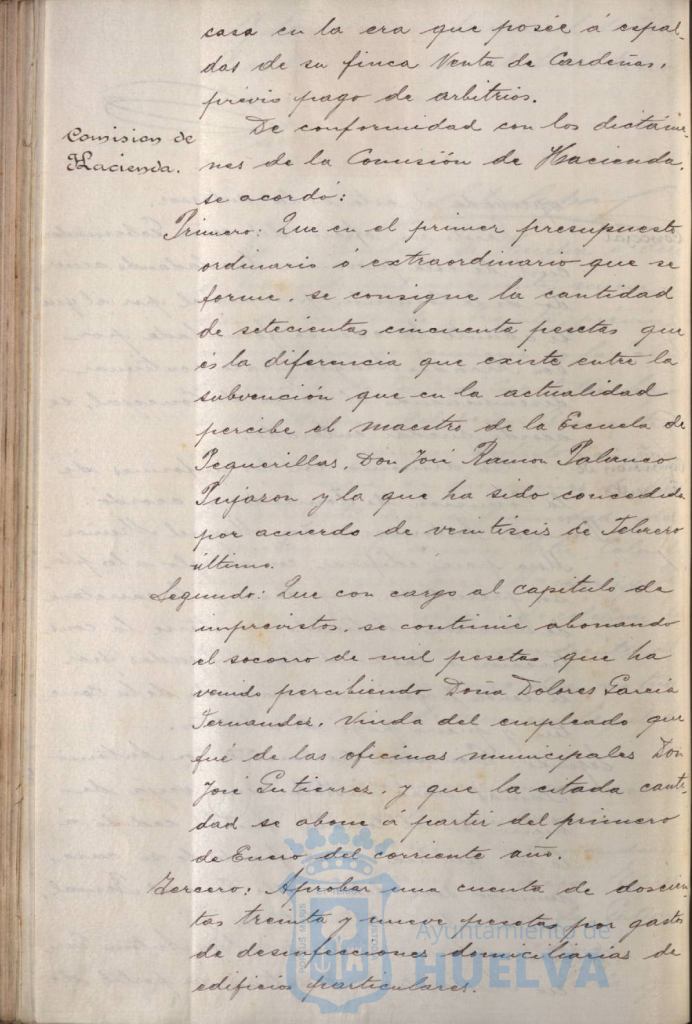 casa en la era que posée á espal-
das de su finca Venta de Cardeñas,
previo pago de arbitrios.
Comision de
Hacienda.
De conformidad con los dictáme-
nes de la Comisión de Hacienda,
se acordó:
Primero: Que en el primer presupuesto
ordinario ó extraordinario que se
forme, se consigne la cantidad
de setecientas cincuenta pesetas que
és la diferencia que existe entre la
subvención que en la actualidad
percibe el maestro de la Escuela de
Peguerillas, Don José Ramon Palanco
Pujazon y la que ha sido concedida
por acuerdo de veintiseis de Febrero
último.
Segundo: Que con cargo al capitulo de
imprevistos, se continúe abonando
el socorro de mil pesetas que ha
venido percibiendo Doña Dolores Garcia
Fernandez, viuda del empleado que
fué de las oficinas municipales Don
José Gutierrez, y que la citada canti-
dad se abone á partir del primero
de Enero del corriente año.
Tercero: Aprobar una cuenta de doscien-
tas treinta y nueve pesetas por gastos
de desinfecciones domiciliarias de
edificios particulares.
Ayuntamiento de
HUELVA